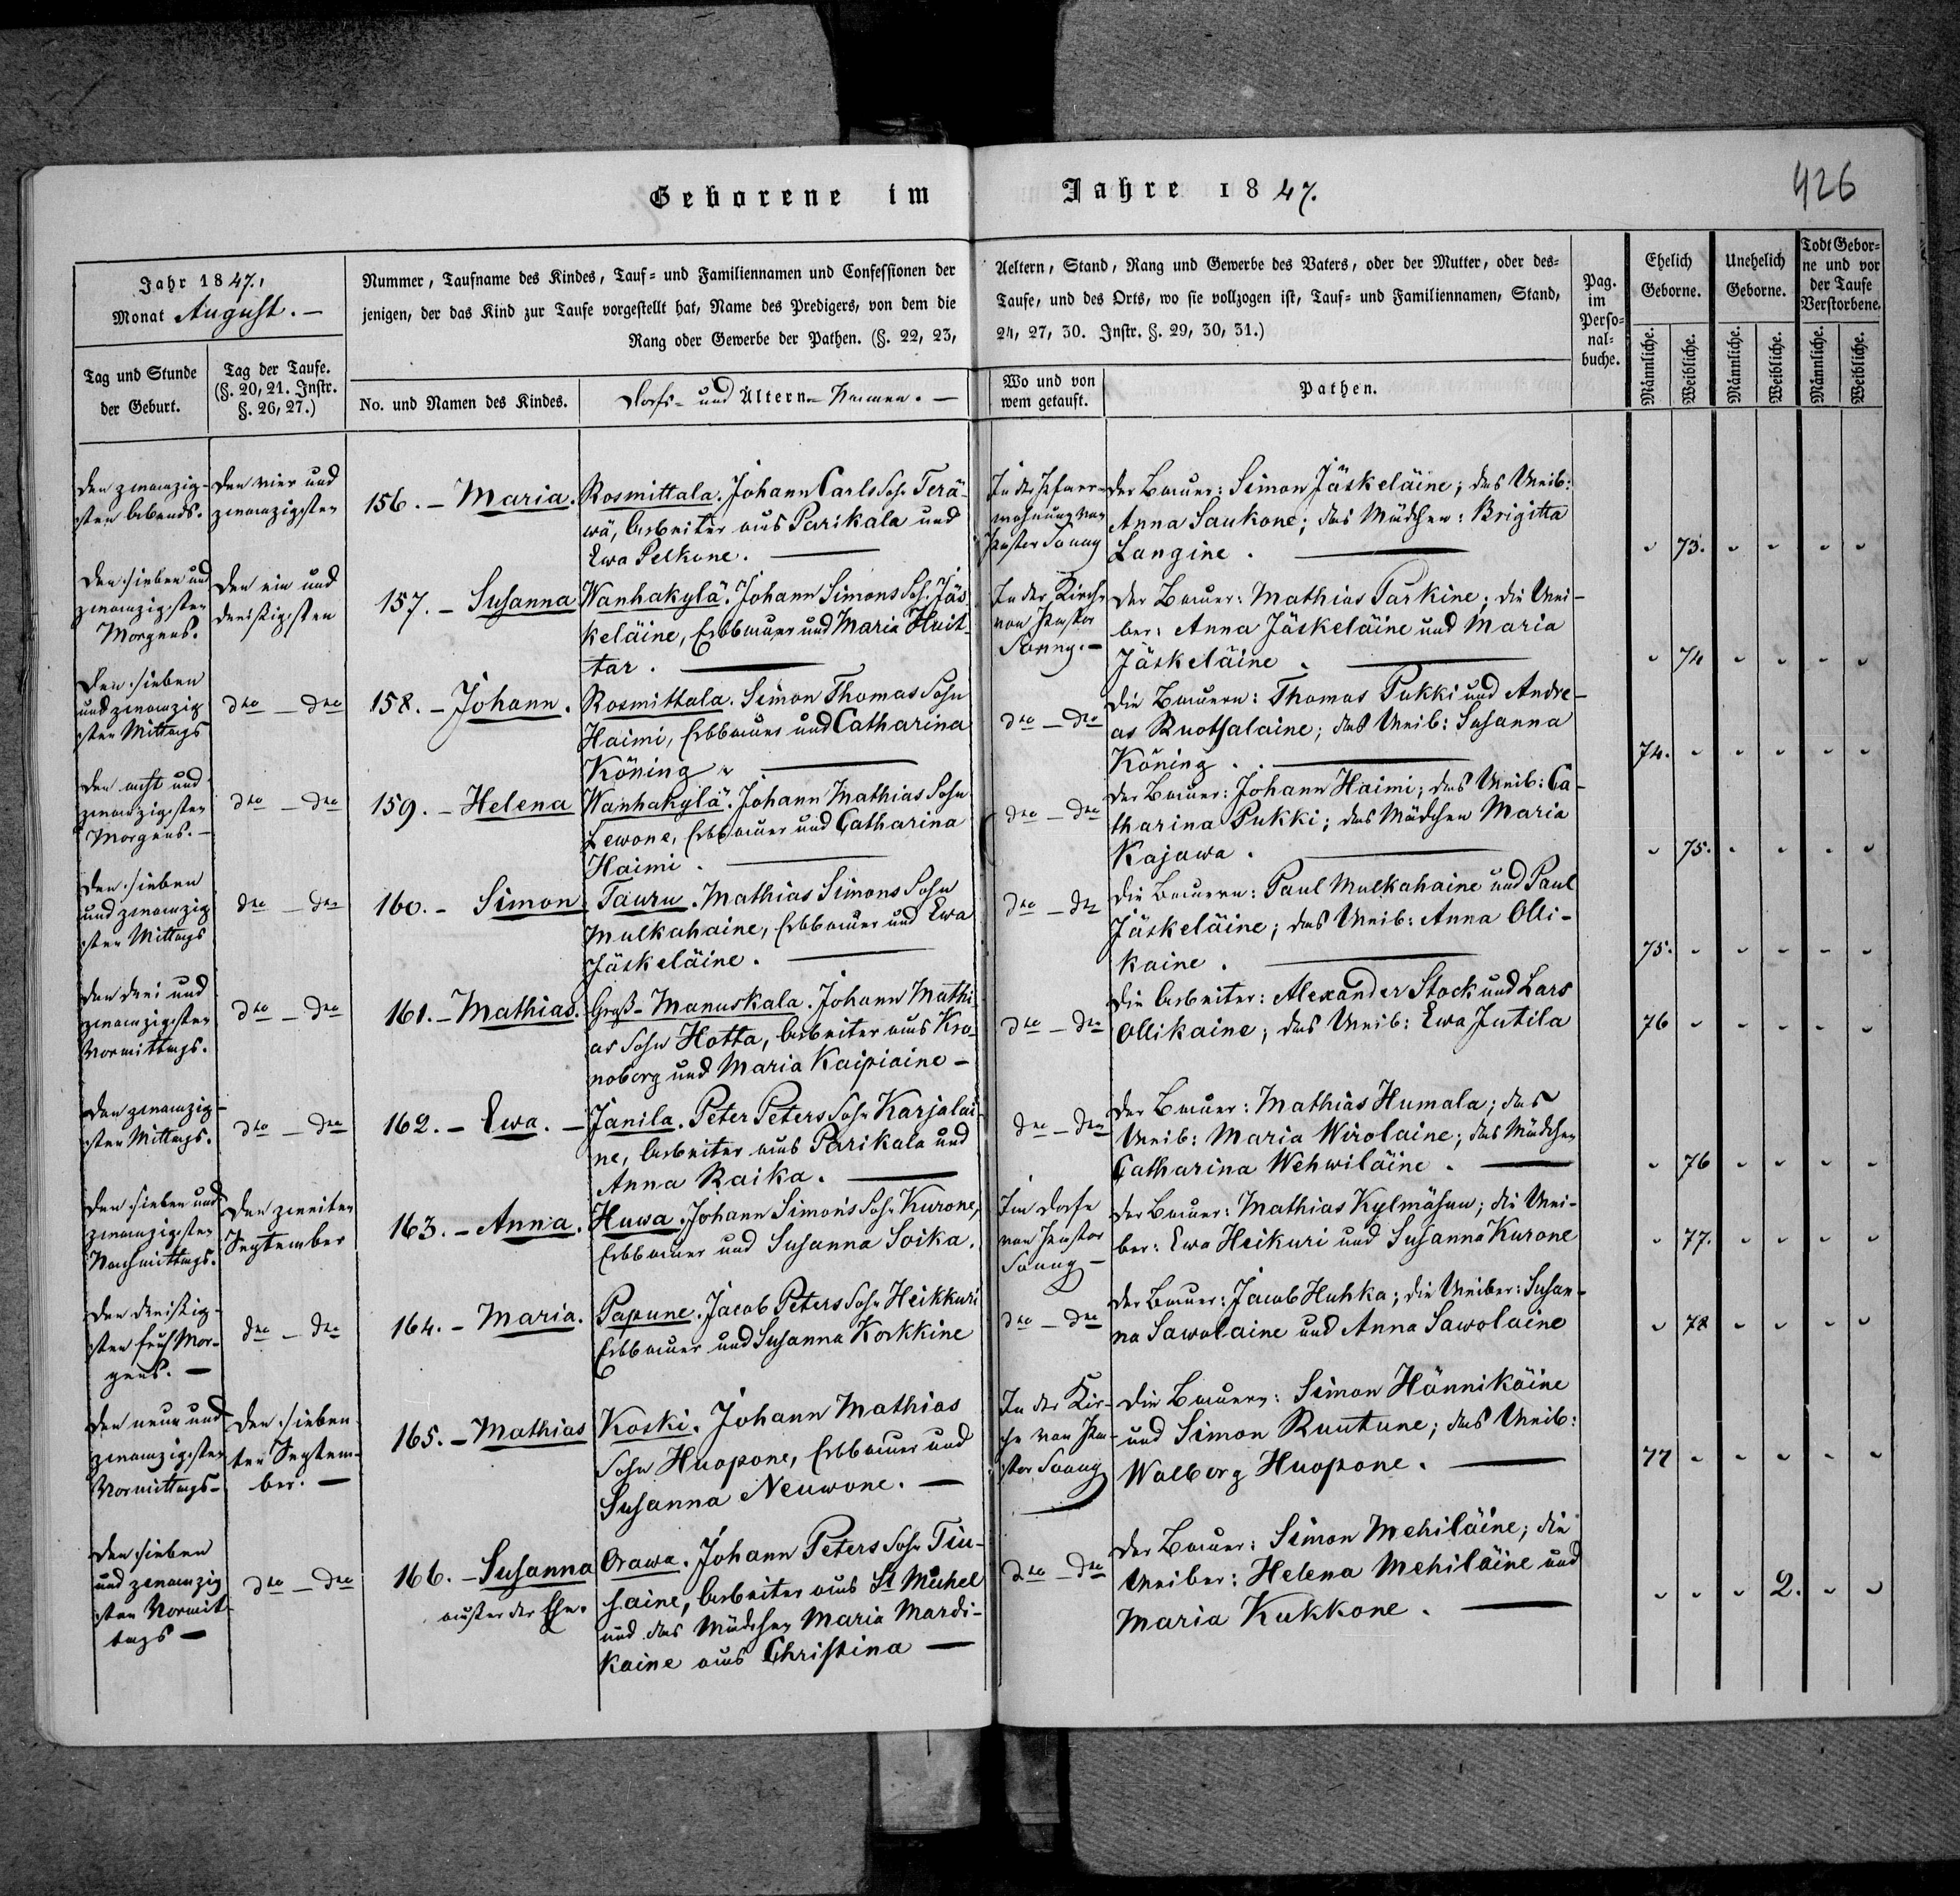 Geborene im Jahre 1847.
426
Jahr 1847.,
Monat August. —
Tag und Stunde
der Geburt.
Tag der Taufe.
(§. 20, 21. Instr.
§. 26, 27.)
Nummer, Taufname des Kindes, Tauf- und Familiennamen und Confessionen der
jenigen, der das Kind zur Taufe vorgestellt hat, Name des Predigers, von dem die
Rang oder Gewerbe der Pathen. (§. 22, 23,
No. und Namen des Kindes.
Dorfs- und Ältern-Namen. —
Aeltern, Stand, Rang und Gewerbe des Vaters, oder der Mutter, oder des-
Taufe, und des Orts, wo sie vollzogen ist, Tauf- und Familiennamen, Stand,
24, 27, 30. Instr. §. 29, 30, 31.)
Wo und von
wem getauft.
Pathen.
Pag.
im
Perso-
nal-
buche.
Ehelich
Geborne.
Unehelich
Geborne.
Todt Gebor-
ne und vor
der Taufe
Verstorbene.
Männliche.
Weibliche.
Männliche.
Weibliche.
Männliche.
Weibliche.
Den zwanzig-
sten Abends.
Den vier und
zwanzigsten
156. — Maria.
Rosmittala. Johann Carls Sohn Terä-
wä, Arbeiter aus Parikala und
Ewa Pelkone. —
In der Pfarr-
wohnung von
Pastor
Der Bauer: Simon Jäskeläine; das Weib:
Anna Saukone; das Mädchen: Brigitta
Langine. —
" 73. " " " "
Den sieben und
zwanzigsten
Morgens.
Den ein und
dreißigsten
157. — Susanna
Wanhakylä. Johann Simons Sohn Jäs-
keläine, Erbbauer und Maria Huit-
tar. —
In der Kirche
von Pastor
Der Bauer: Mathias Parkine; die Wei-
ber: Anna Jäskeläine und Maria
Jäskeläine. —
" 74 " " " "
Den sieben
und zwanzig
sten Mittags
dto — dto
158. — Johann.
Rosmittala. Simon Thomas Sohn
Haimi, Erbbauer und Catharina
Köning. —
dto — dto
Die Bauern: Thomas Pukki und Andre-
as Ruotsalaine; das Weib: Susanna
Köning. —
74. " " " " "
Den acht und
zwanzigsten
Morgens. —
dto — dto
159. — Helena
Wanhakylä. Johann Mathias Sohn
Lewone, Erbbauer und Catharina
Haimi. —
dto — dto
Der Bauer: Johann Haimi; das Weib: Ca-
tharina Pukki; das Mädchen Maria
Kajawa. —
" 75. " " " "
Den sieben
und zwanzig
sten Mittags
dto — dto
160. — Simon
Tauru. Mathias Simons Sohn
Mulkahaine, Erbbauer und Ewa
Jäskeläine. —
dto — dto
Die Bauern: Paul Mulkahaine und Paul
Jäskeläine; das Weib: Anna Olli-
kaine. —
75. " " " " "
Den drei und
zwanzigsten
Vormittags.
dto — dto
161. — Mathias.
Groß-Manuskala. Johann Mathi
as Sohn Hotta, Arbeiter aus Kro-
noborg und Maria Kaipiaine —
dto — dto
Die Arbeiter: Alexander Stock und Lars
Ollikaine; das Weib: Ewa Jutila
76 " " " " "
Den zwanzig-
sten Mittags.
dto — dto
162. — Ewa. —
Janila. Peter Peters Sohn Karjalai-
ne, Arbeiter aus Parikala und
Anna Raika. —
dto — dto
Der Bauer: Mathias Humala; das
Weib: Maria Wirolaine; das Mädchen
Catharina Wehwiläine. —
" 76 " " " "
Den sieben und
zwanzigsten
Nachmittags.
Den zweiten
September
163. — Anna.
Huwa. Johann Simons Sohn Kurone,
Erbbauer und Susanna Soika.
Im Dorfe
von Pastor
Der Bauer: Mathias Kylmähuu; die Wei-
ber: Ewa Heikuri und Susanna Kurone
" 77. " " " "
Den dreißig-
sten früh Mor-
gens. —
dto — dto
164. — Maria.
Papune. Jacob Peters Sohn Heikkuri
Erbbauer und Susanna Korkkine
dto — dto
Der Bauer: Jacob Huhka; die Weiber: Susan-
na Sawolaine und Anna Sawolaine
" 78 " " " "
Den neun und
zwanzigsten
Vormittags —
Den sieben
ten Septem-
ber. —
165. — Mathias
Koski. Johann Mathias
Sohn Huopone, Erbbauer und
Susanna Neuwone. —
In der Kir-
che von Pa-
stor
Die Bauern: Simon Hännikäine
und Simon Ruutune; das Weib:
Walborg Huopone. —
77 " " " " "
Den sieben
und zwanzig
sten Vormit-
tags —
dto — dto
166. — Susanna
außer der Ehe.
Orawa. Johann Peters Sohn Tiu-
haine, Arbeiter aus St Michel
und das Mädchen Maria Mardi-
kaine aus Christina —
dto — dto
Der Bauer: Simon Mehiläine; die
Weiber: Helena Mehiläine und
Maria Kukkone. —
" " " 2. " "